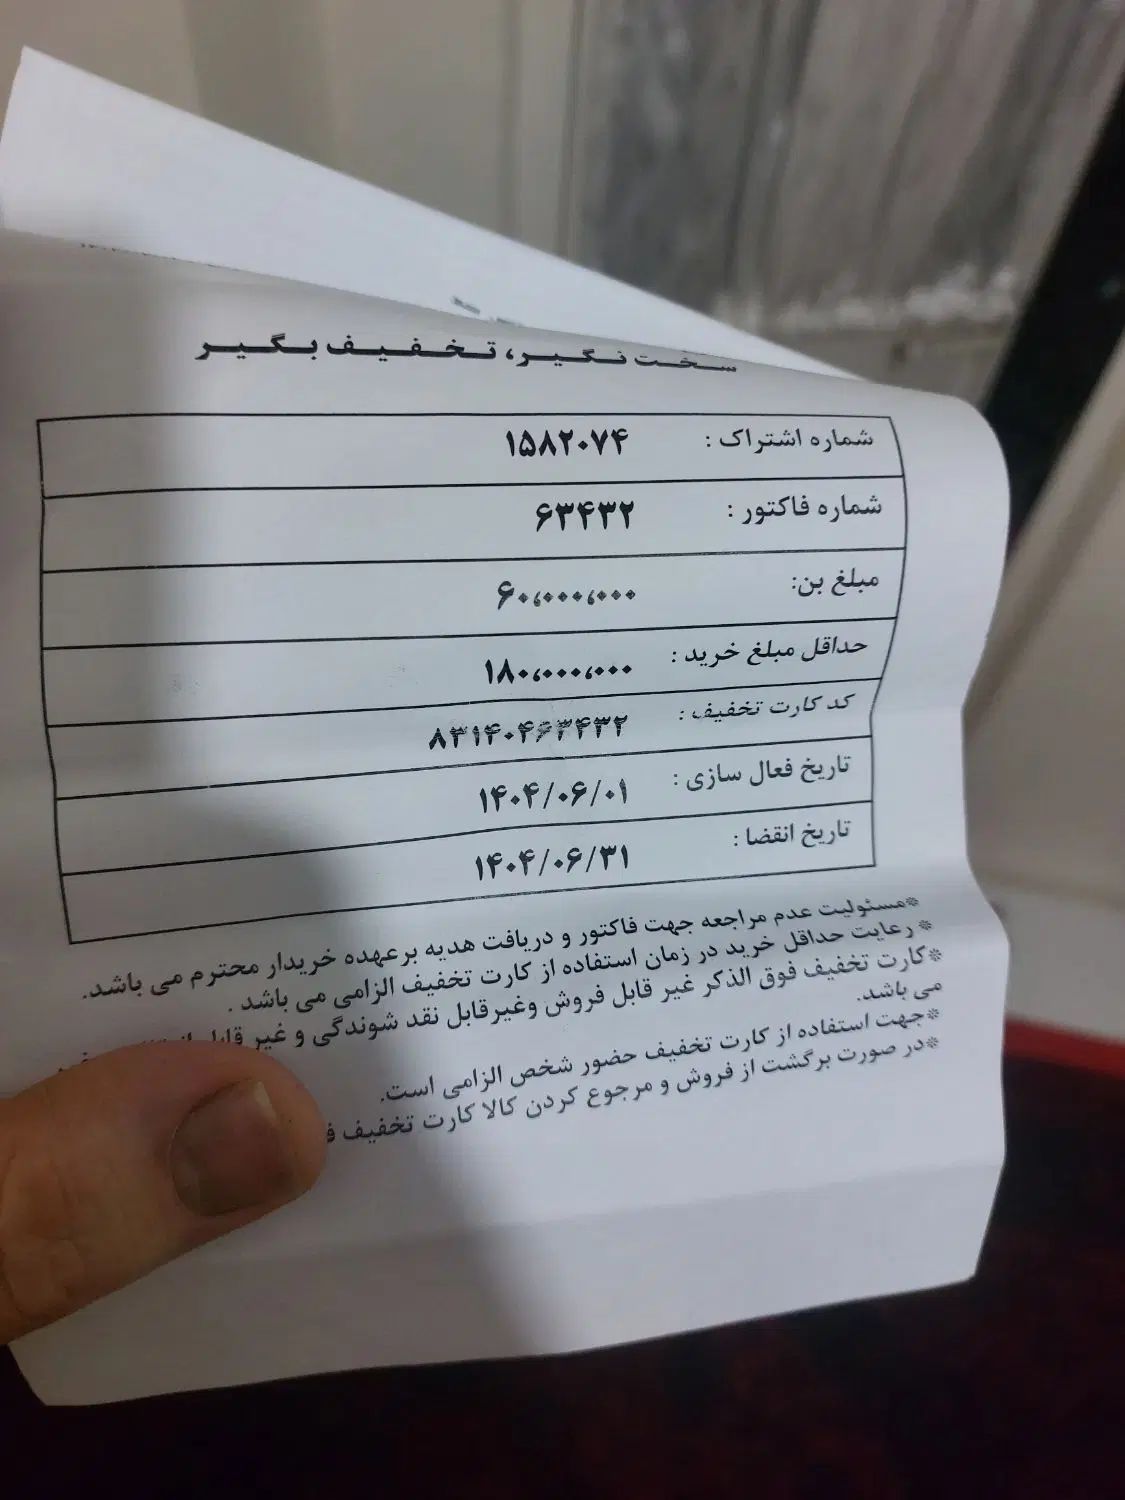 سخت نگیر، تخفیف بگیر
شماره اشتراک : ۱۵۸۲۰۷۴
شماره فاکتور : ۶۳۴۳۲
مبلغ بن: ۶۰،۰۰۰،۰۰۰
حداقل مبلغ خرید : ۱۸۰،۰۰۰،۰۰۰
کد کارت تخفیف : ۸۳۱۴۰۴۶۳۴۳۲
تاریخ فعال سازی : ۱۴۰۴/۰۶/۰۱
تاریخ انقضا : ۱۴۰۴/۰۶/۳۱
*مسئولیت عدم مراجعه جهت فاکتور و دریافت هدیه برعهده خریدار محترم می باشد.
* رعایت حداقل خرید در زمان استفاده از کارت تخفیف الزامی می باشد .
*کارت تخفیف فوق الذکر غیر قابل فروش وغیرقابل نقد شوندگی و غیر
می باشد.
*جهت استفاده از کارت تخفیف حضور شخص الزامی است.
*در صورت برگشت از فروش و مرجوع کردن کالا کارت تخفیف